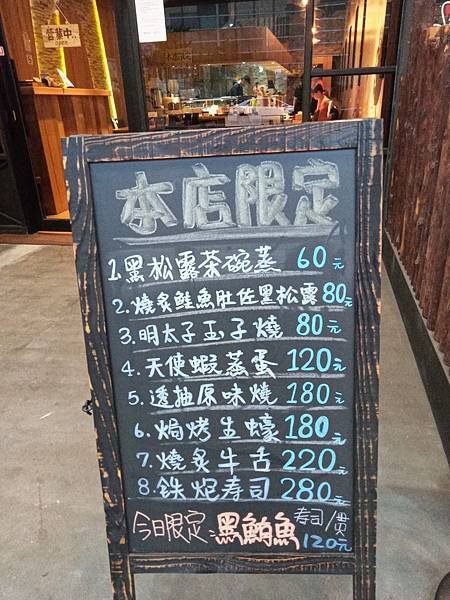 營業中..
open
本店限定
1.黑松露茶碗蒸 60元
2.燒炙鮭魚肚佐黑松露80元
3.明太子玉子燒 80元
4.天使蝦蒸蛋 120元
5.透抽原味燒 180元
6.焗烤生蠔 180元
7.燒炙牛舌 220元
8.鉄炮寿司 280元
今日限定:黑鮪魚 寿司/貫
120元